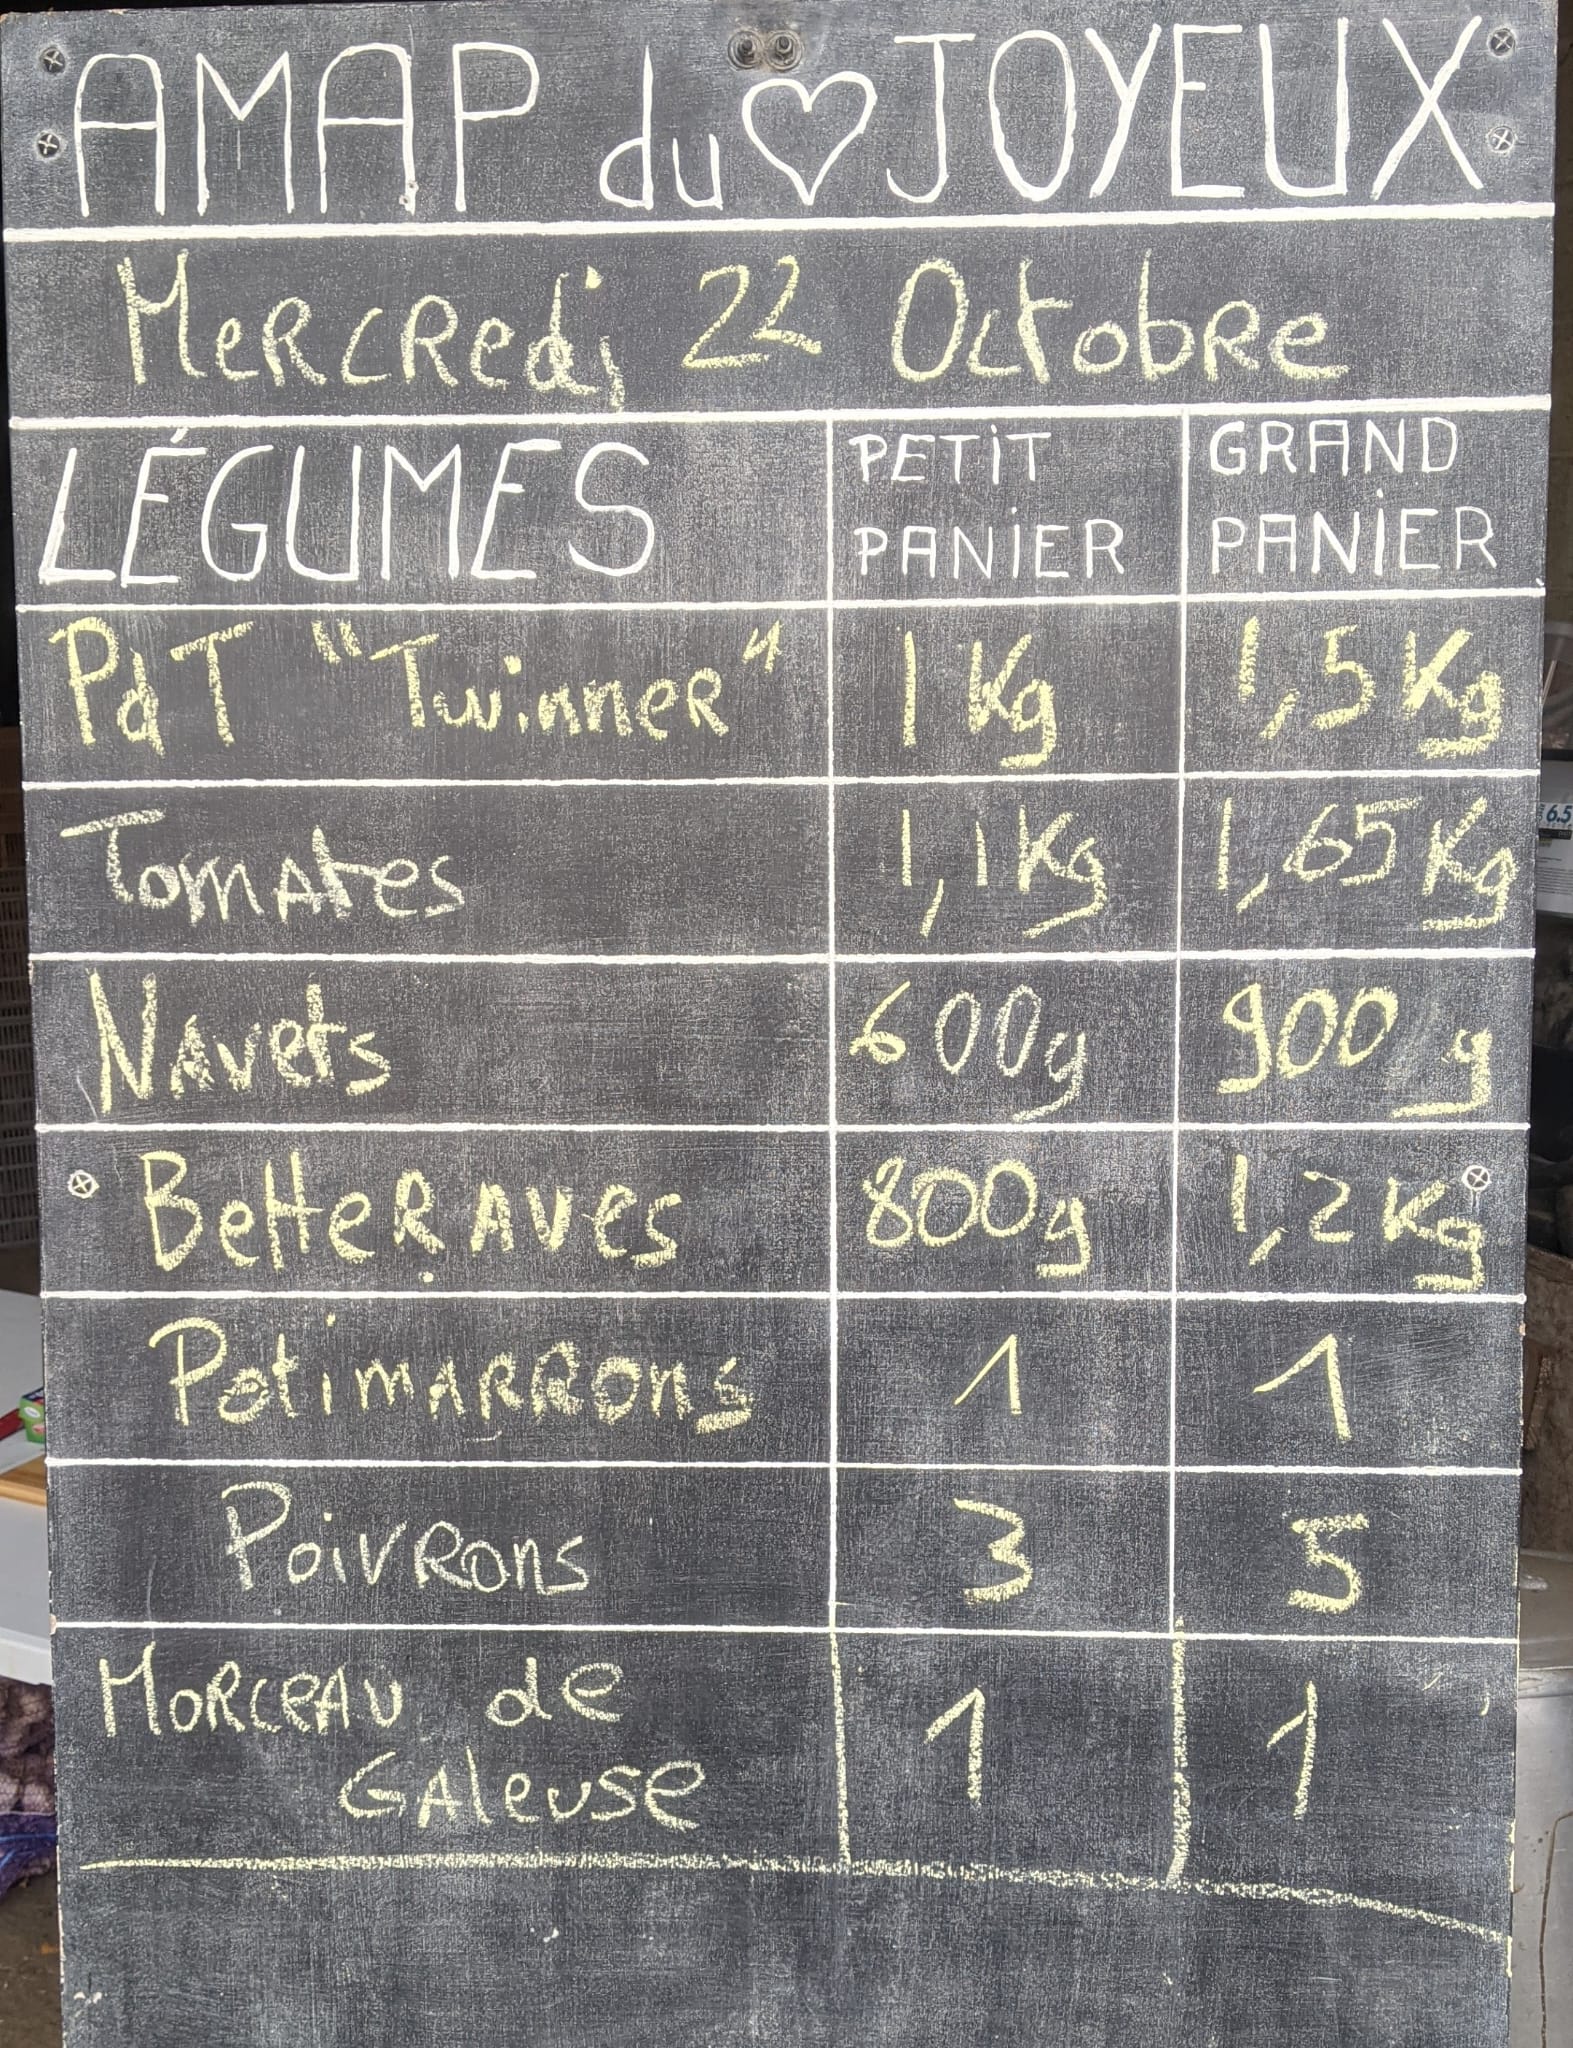 AMAP du ♡ JOYEUX
Mercredi 22 Octobre
LÉGUMES PETIT PANIER GRAND PANIER
PdT "Twinner" 1 Kg 1,5 Kg
Tomates 1,1 Kg 1,65 Kg
Navets 600g 900 g
Betteraves 800g 1,2 Kg
Potimarrons 1 1
Poivrons 3 5
Morceau de
Galeuse 1 1
6.5